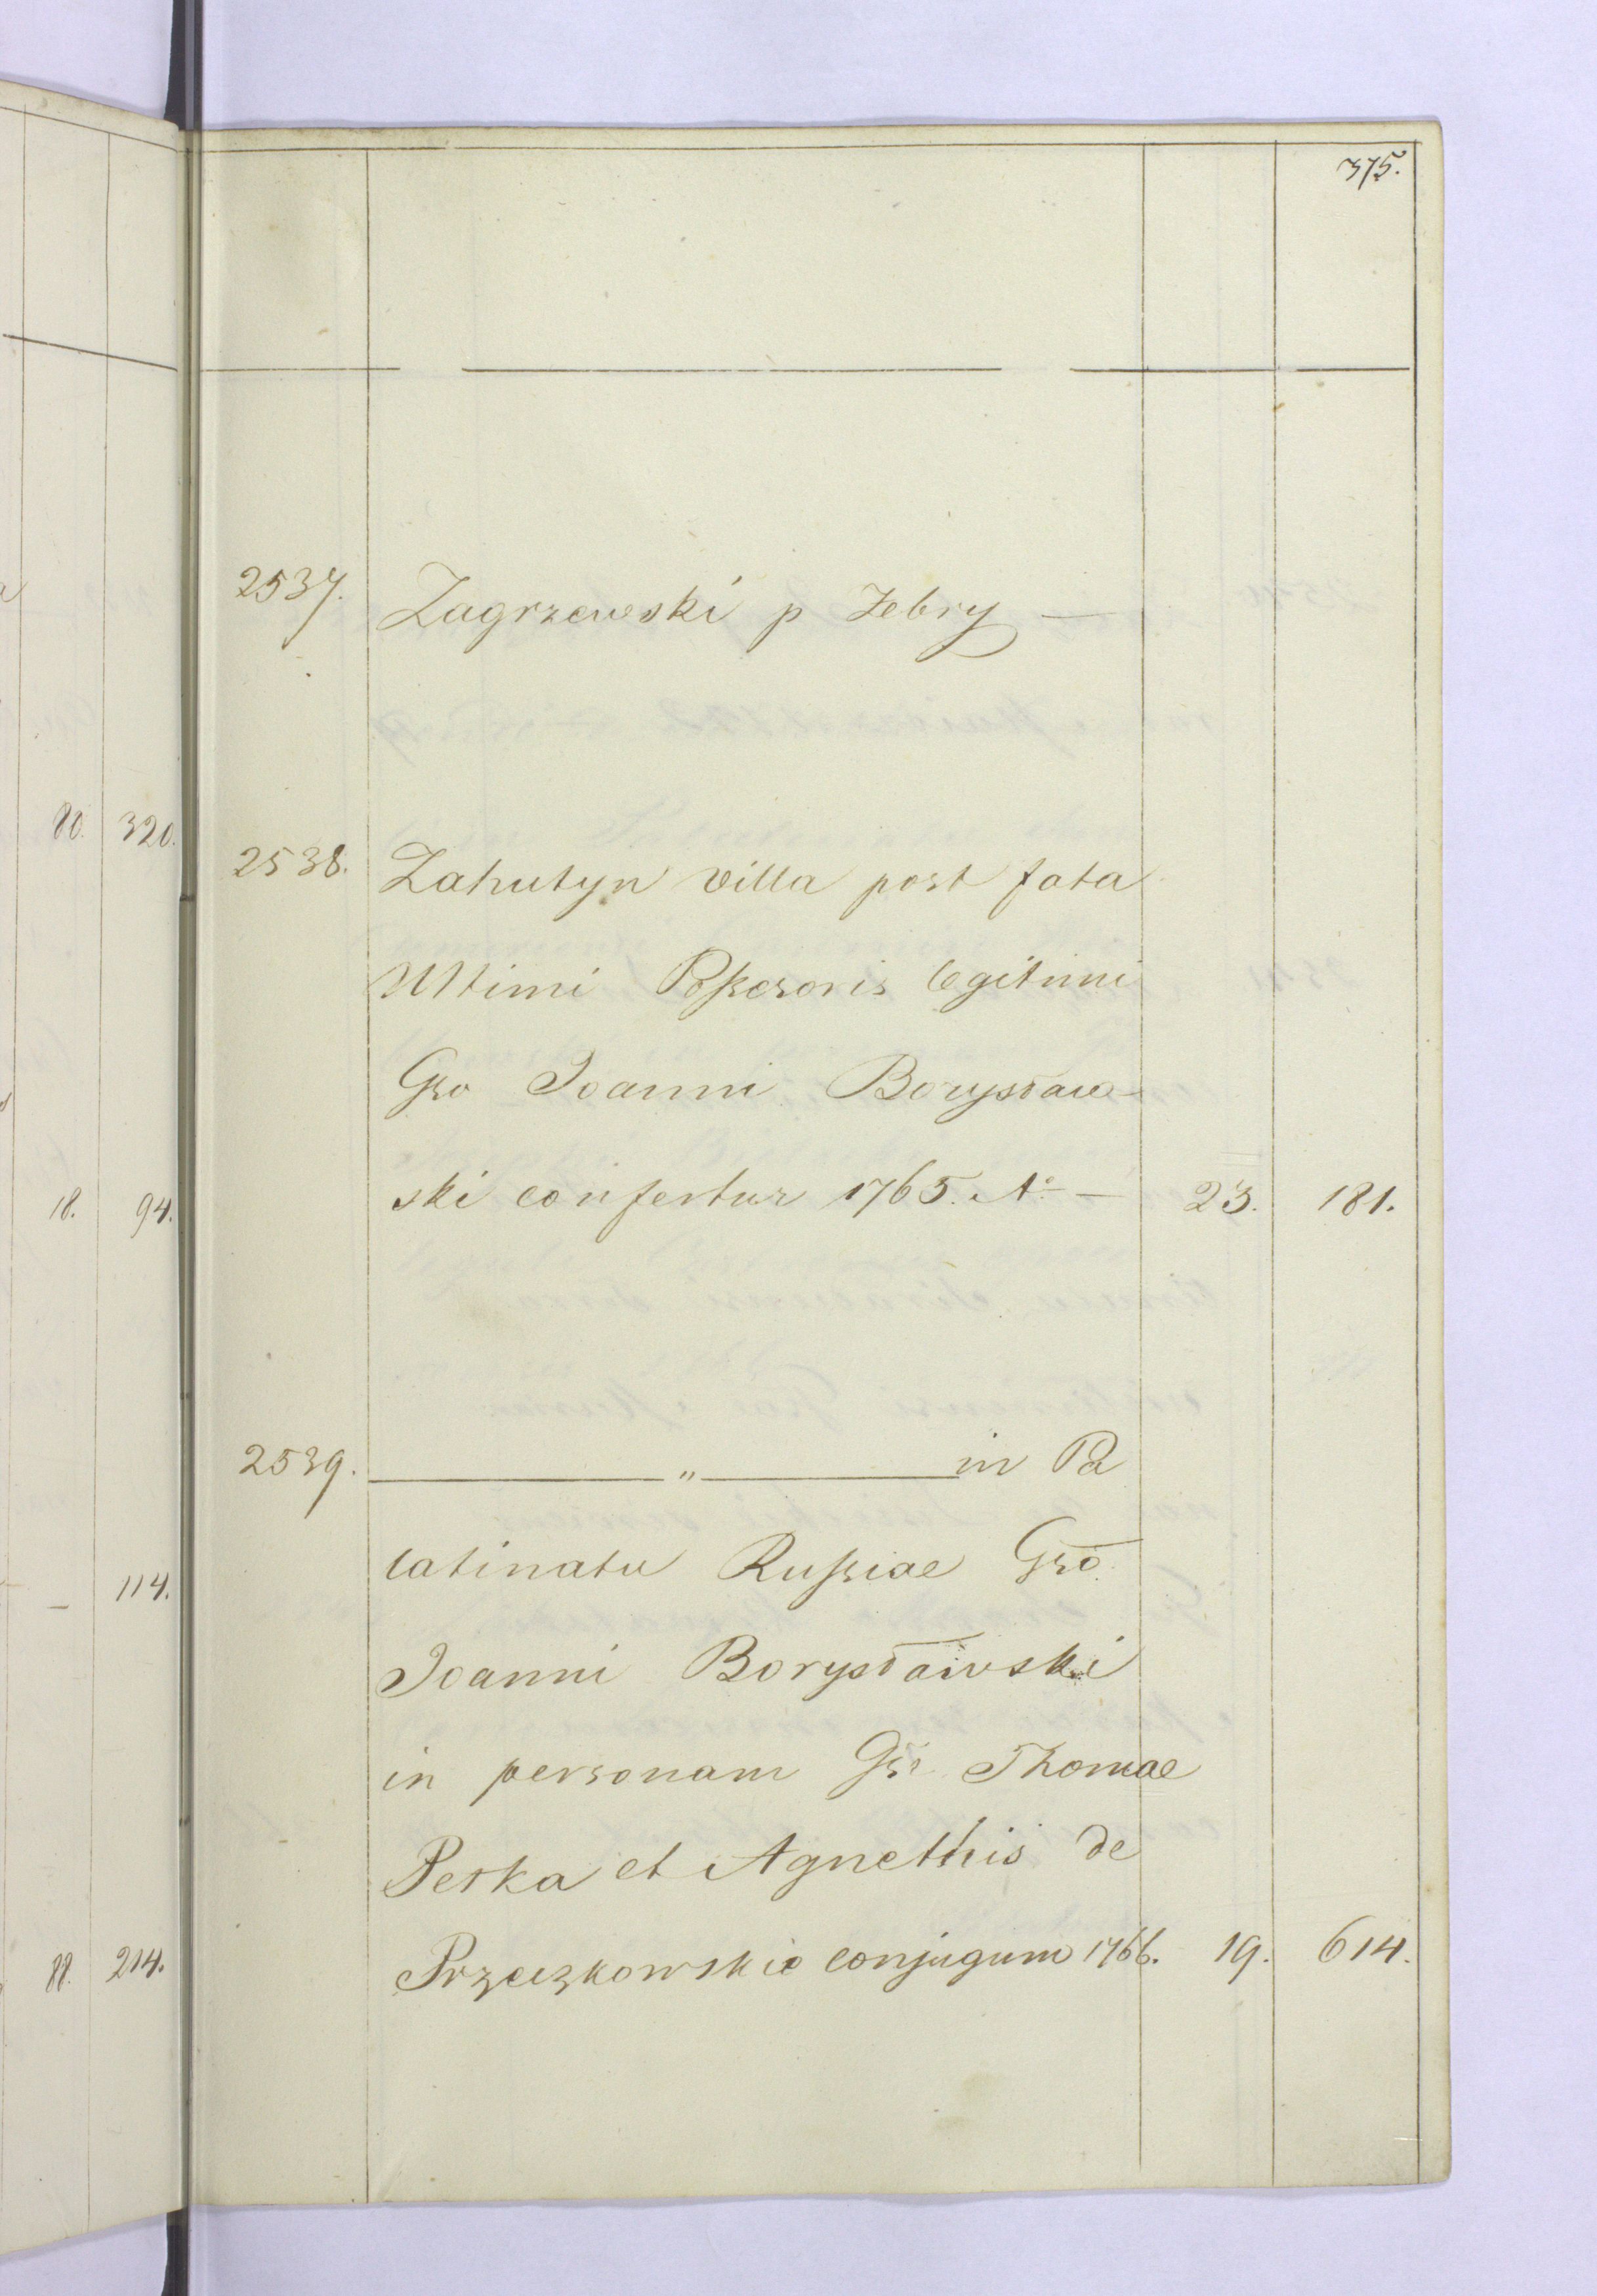 375.
2537. Zagrzewski p Zebry —
80. 320.
2538. Zahutyn villa post fata
Ultimi Poßesoris legitimi
Gso Joanni Borysław-
ski confertur 1765. Aº — 23. 181.
18. 94.
2539. " in Pa
latinatu Rußiae Gso
— 114.
Joanni Borysławski
in personam Gsr Thomae
Peska et Agnethis de
Przeczkowskie conjugum 1766. 19. 614.
88. 214.